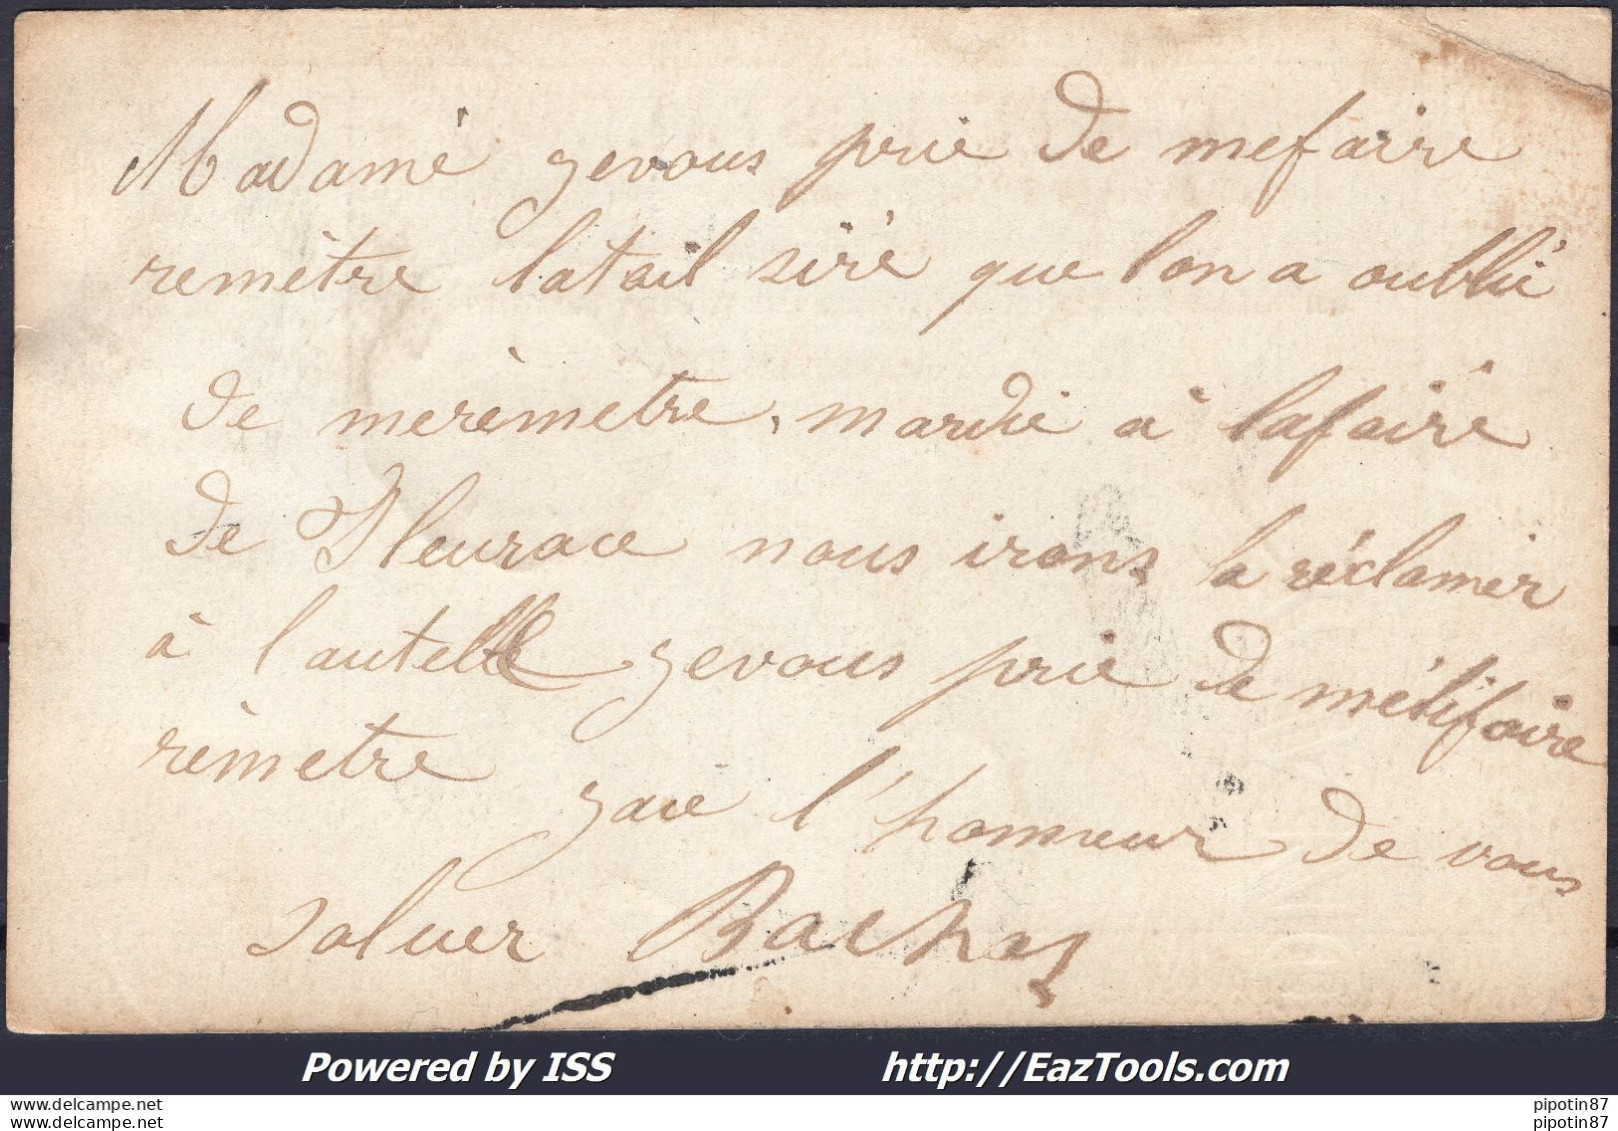 Madame gevous prie de mefaire
remètre latoil siré que lon a oublié
de merèmetre, mardi à lafaire
de Fleurace nous irons la réclamer
à l'autelle gevous prie de mélifaire
rèmetre gaie l'honneur de vous
saluer Bachos
Powered by ISS http://EazTools.com
www.delcampe.net pipotin87
www.delcampe.net pipotin87